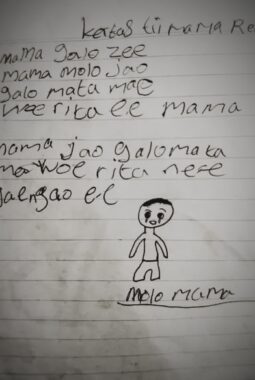 kertas tii mama Re
mama galo zee
mama molo jao
galo mata mae
woe rita ee mama
mama jao galo mata
ma woe rita nese
gaengao e-e
molo mama